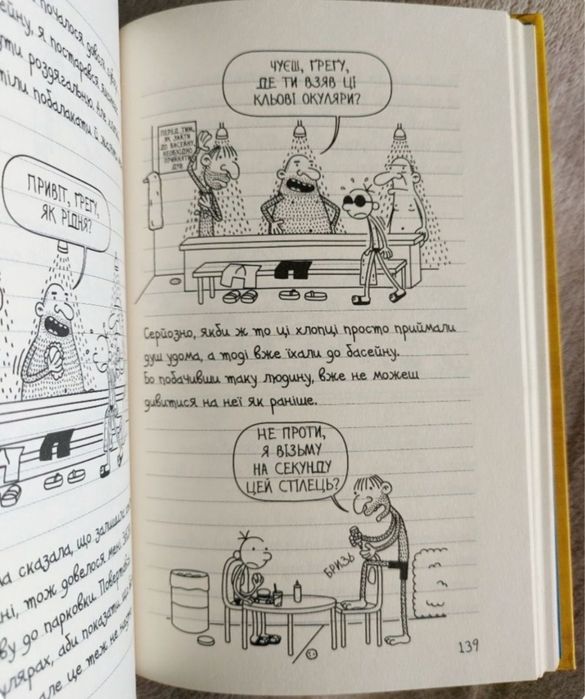 почалося
я постарався
роздягальню.
побалакати й
ПРИВІТ, ҐРЕҐУ,
ЯК РІДНЯ?
сказала, що залишила
тож довелося мені
до парковки.
аби показати
але це теж не
ЧУЄШ, ҐРЕҐУ,
ДЕ ТИ ВЗЯВ ЦІ
КЛЬОВІ ОКУЛЯРИ?
ПЕРЕД ТИМ,
ЯК ЗАЙТИ
ДО БАСЕЙНУ,
НЕОБХІДНО
ПРИЙНЯТИ
ДУШ
Серйозно, якби ж то ці хлопці просто приймали
душ удома, а тоді вже їхали до басейну.
Бо побачивши таку людину, вже не можеш
дивитися на неї як раніше.
НЕ ПРОТИ,
Я ВІЗЬМУ
НА СЕКУНДУ
ЦЕЙ СТІЛЕЦЬ?
БРИЗЬ
139